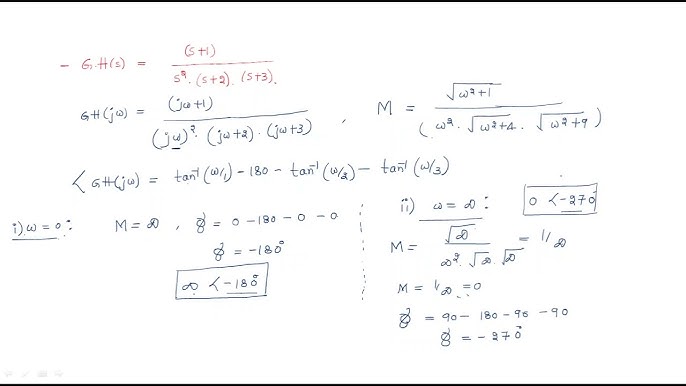 - G.H(s) = (s+1) / s². (s+2). (s+3).
GH(jω) = (jω+1) / (jω)². (jω+2). (jω+3) , M = √ω²+1 / (ω². √ω²+4. √ω²+9)
∠GH(jω) = tan⁻¹(ω/1) - 180 - tan⁻¹(ω/2) - tan⁻¹(ω/3)
i) ω=0: M = ∞ , ϕ = 0 - 180 - 0 - 0
ϕ = -180°
∞ ∠-180°
ii) ω = ∞: 0 ∠-270°
M = √∞ / ∞². √∞. √∞ = 1/∞
M = 1/∞ = 0
ϕ = 90 - 180 - 90 - 90
ϕ = - 270°